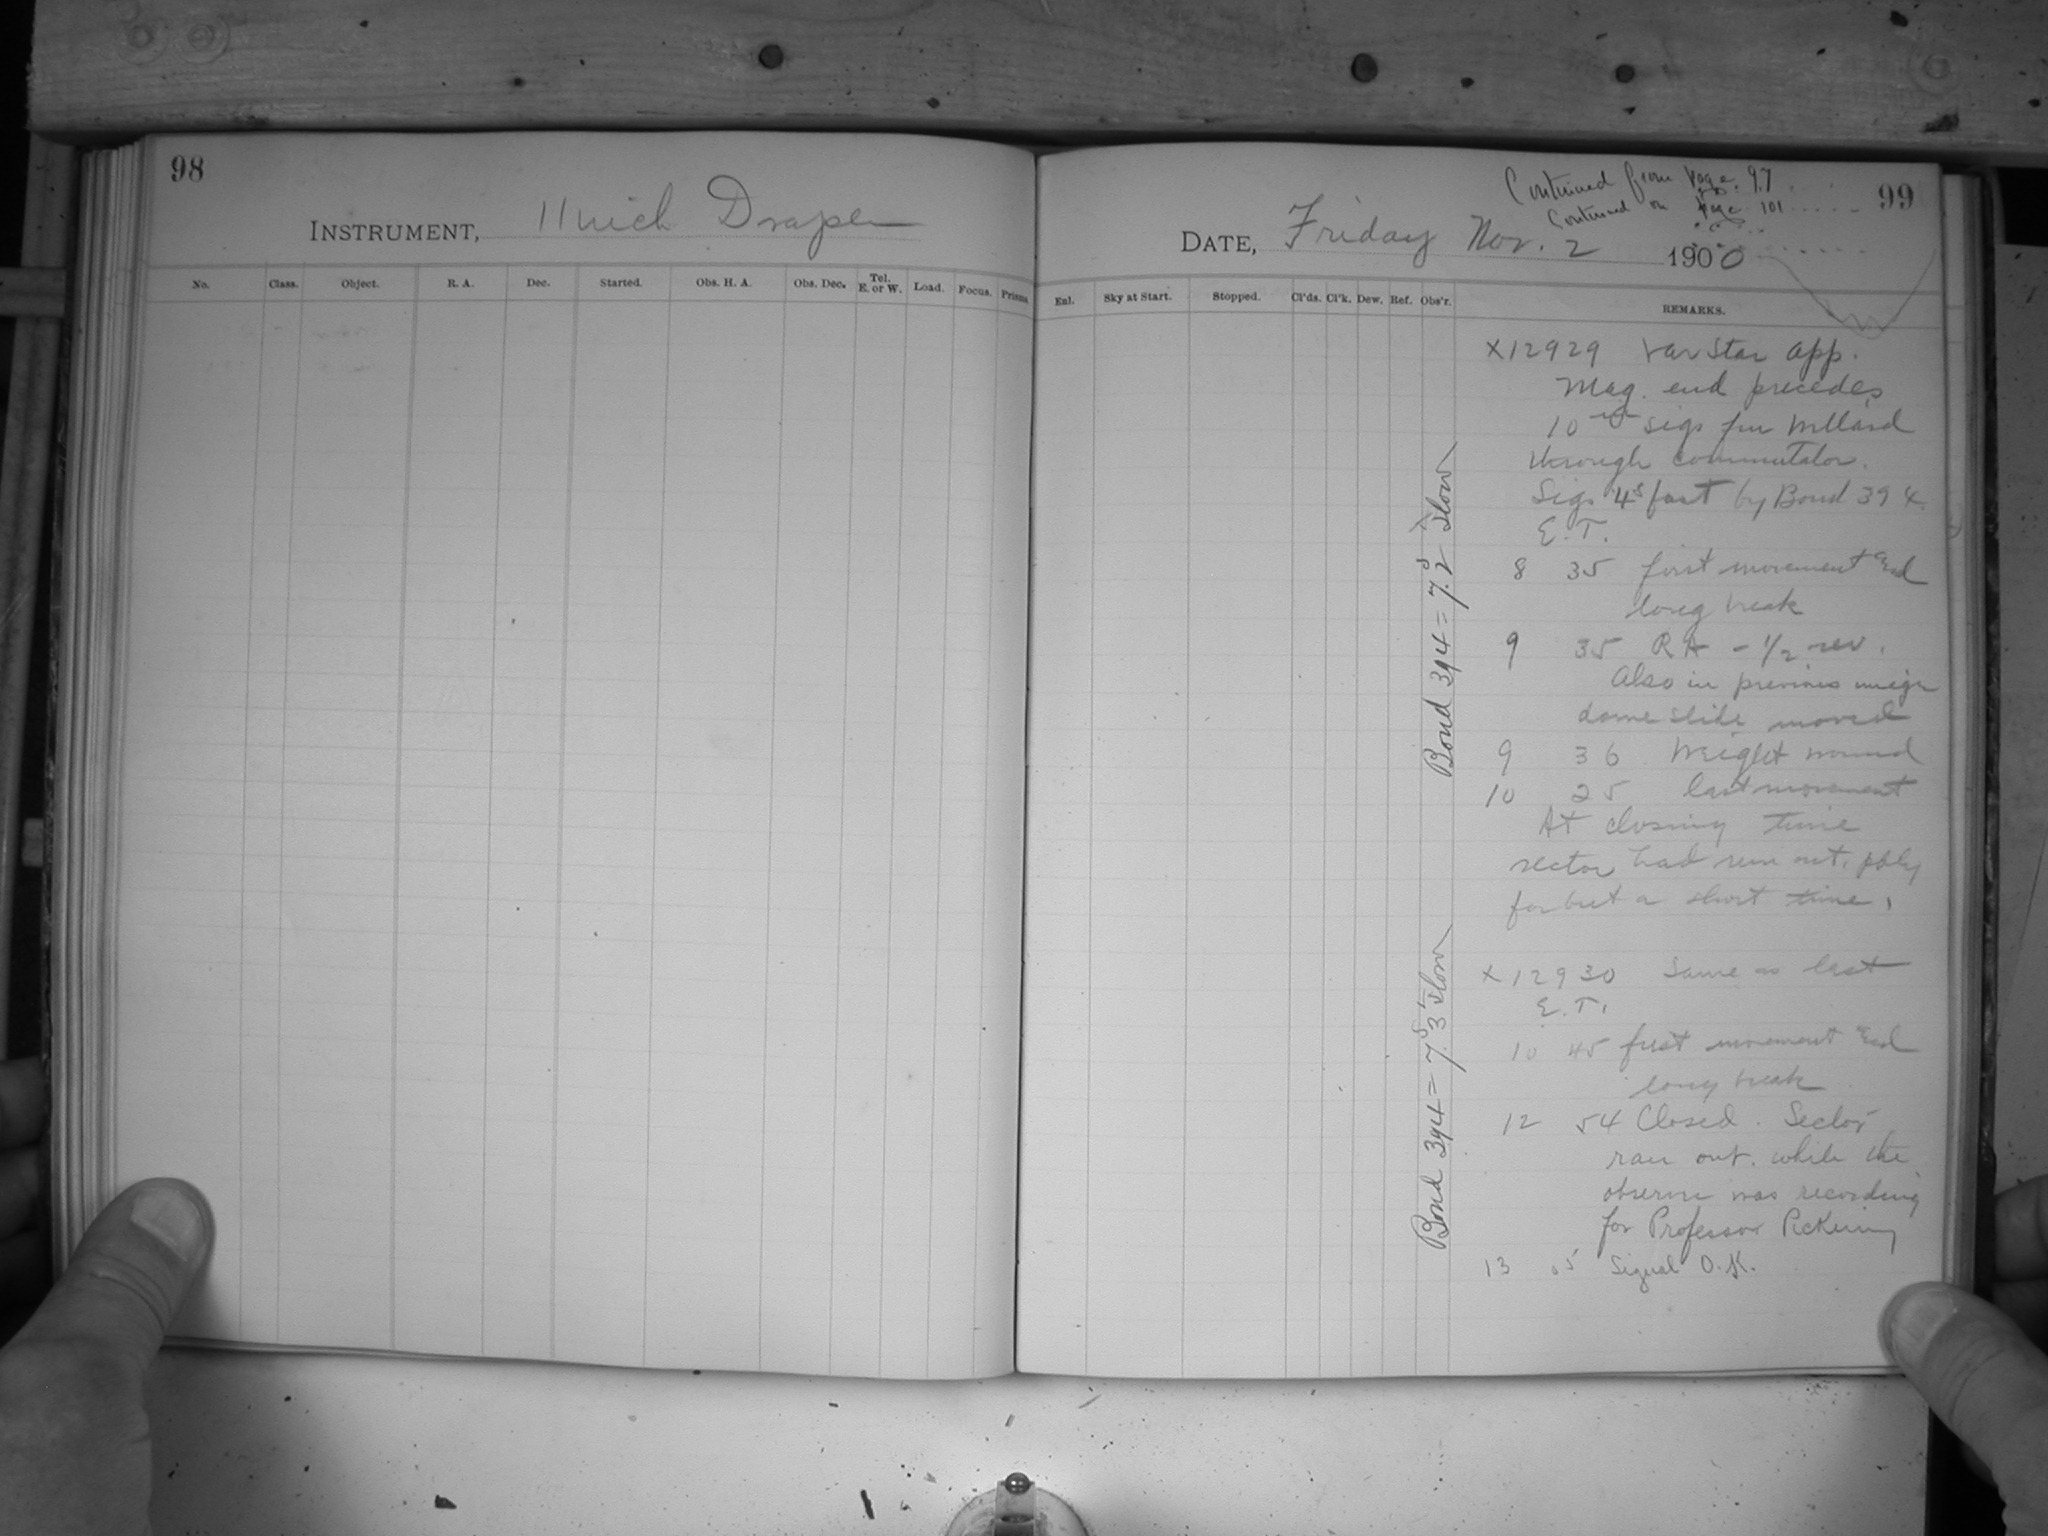 98
INSTRUMENT, 11 inch Draper
No. Class. Object. R. A. Dec. Started. Obs. H. A. Obs. Dec. Tel. E. or W. Load. Focus. Prisms
Continued from Page. 97
Continued on Page 101
99
DATE, Friday Nov. 2 1900
Enl. Sky at Start. Stopped. Cl'ds. Cl'k. Dew. Ref. Obs'r. REMARKS.
X12929 Var Star App.
Mag. end precedes
10 sigs for Willard
through commutator.
Sigs 4s fast by Bond 394.
E.T.
8 35 first movement End
long break
9 35 RA - 1/2 rev.
Also in previous
dome slide moved
9 36 Weight wound
10 25 last movement
At closing time
sector had run out, pbly
for but a short time,
Bond 394 = 7.s2 slow
X12930 Same as last
E.T.
10 45 first movement End
long break
12 54 Closed. Sector
ran out. while the
observer was recording
for Professor Pickering
13 05 Signal O.K.
Bond 394 = 7.s3 slow